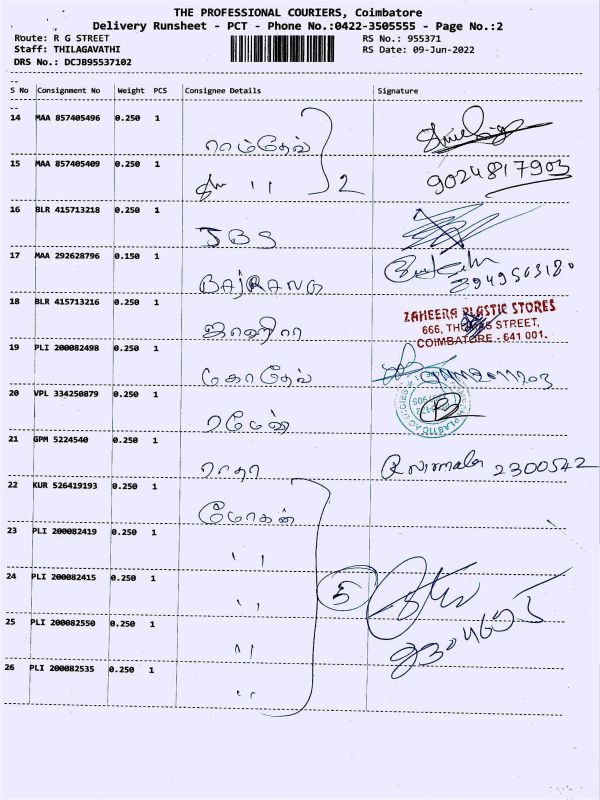 THE PROFESSIONAL COURIERS, Coimbatore
Delivery Runsheet - PCT - Phone No.:0422-3505555 - Page No.:2
Route: R G STREET RS No.: 955371
Staff: THILAGAVATHI RS Date: 09-Jun-2022
DRS No.: DCJB95537102
S No Consignment No Weight PCS Consignee Details Signature
14 MAA 857405496 0.250 1
ராம்தேவ்
15 MAA 857405409 0.250 1 9024817903
2
16 BLR 415713218 0.250 1
JBS
17 MAA 292628796 0.150 1
BAJRANG
18 BLR 415713216 0.250 1
ZAHEERA PLASTIC STORES
666, THOMAS STREET,
COIMBATORE - 641 001.
19 PLI 200082498 0.250 1
மகாதேவ்
20 VPL 334250879 0.250 1
ரமேஷ்
21 GPM 5224540 0.250 1
ராதா R Nirmala 2300542
22 KUR 526419193 0.250 1
மோகன்
23 PLI 200082419 0.250 1
" "
24 PLI 200082415 0.250 1
5
" "
25 PLI 200082550 0.250 1
" "
26 PLI 200082535 0.250 1
" "